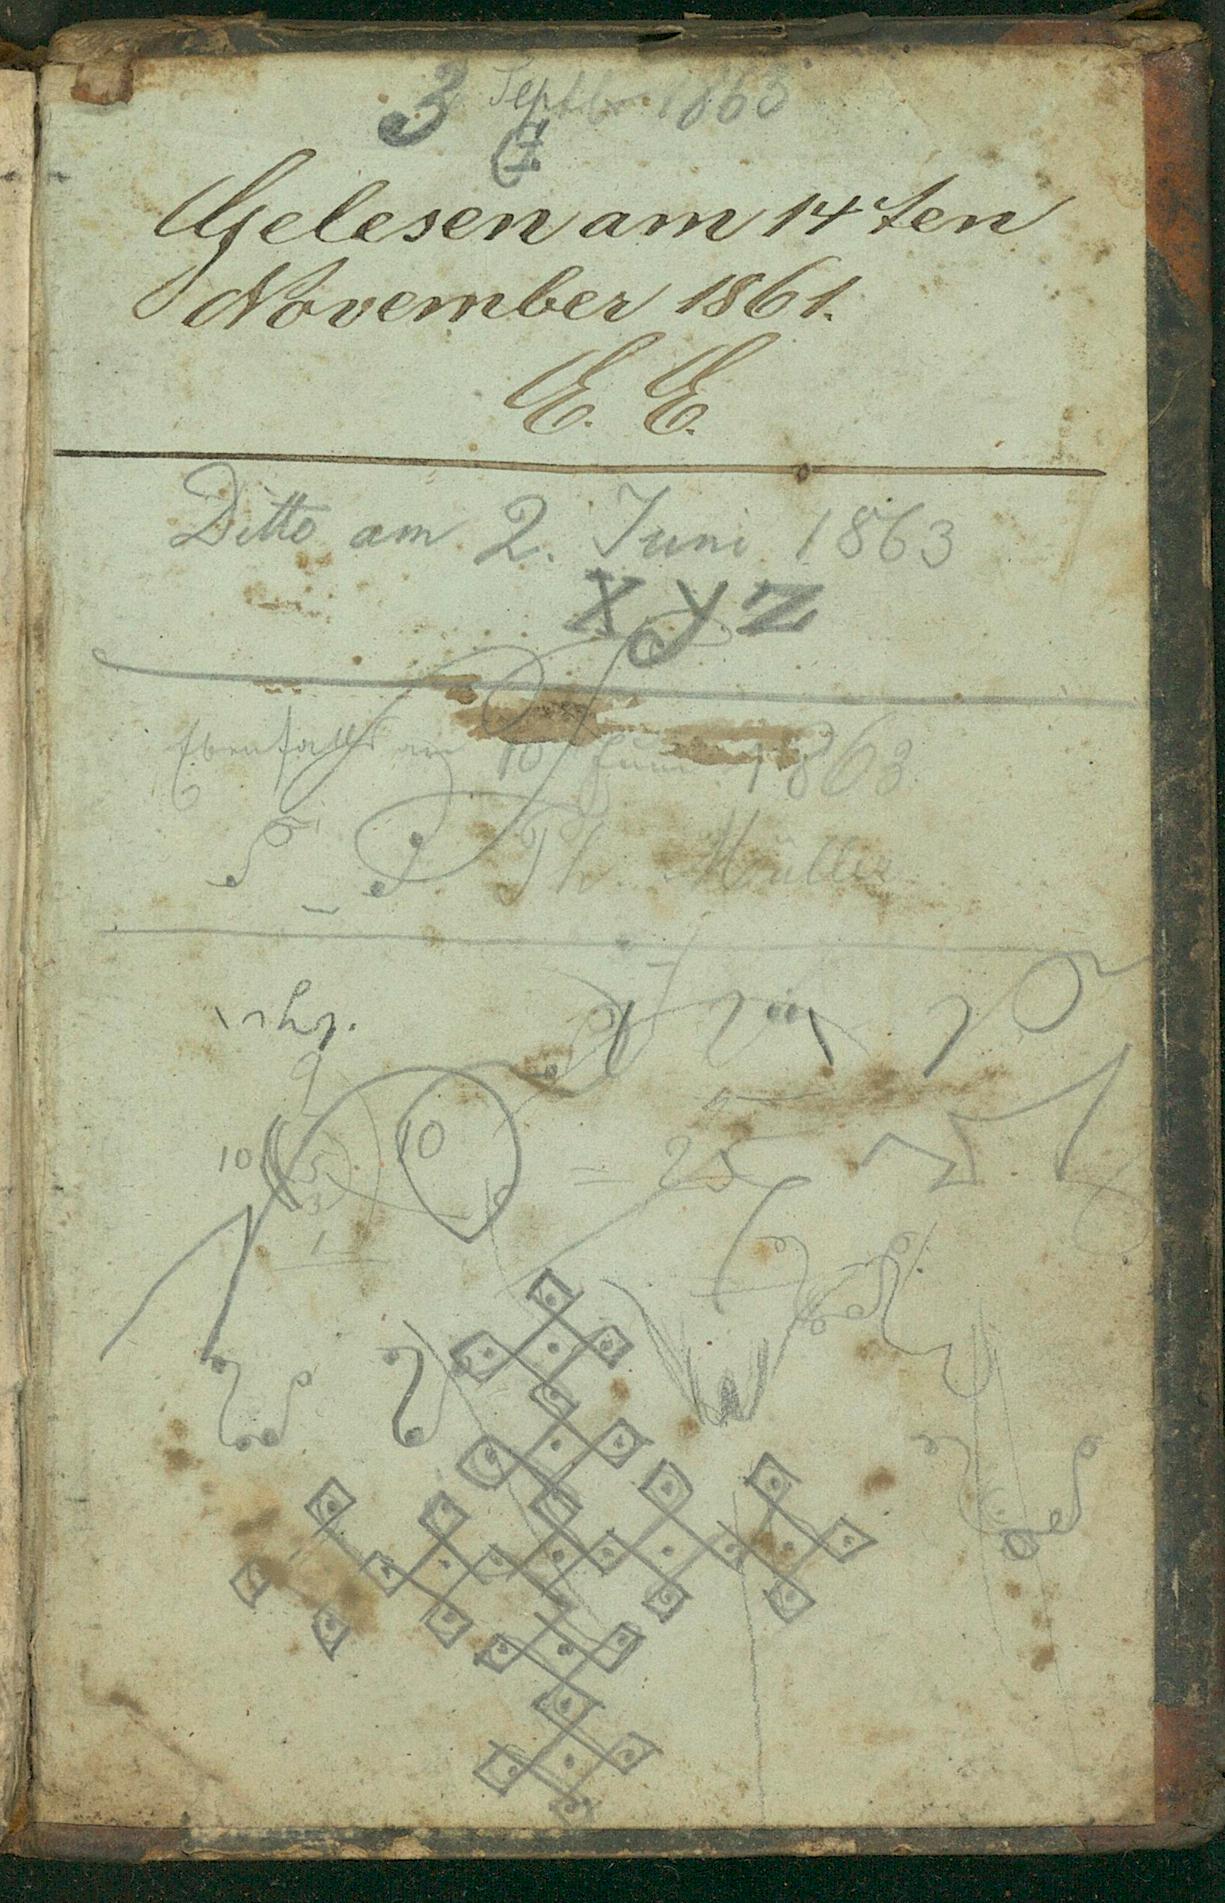 3 Septbr 1863
Gelesen am 14ten
November 1861.
E. E.
Ditto am 2. Juni 1863
x y z
Ebenfalls am 10 Juni 1863
Th. Müller
10
10
= 25
5
3
1